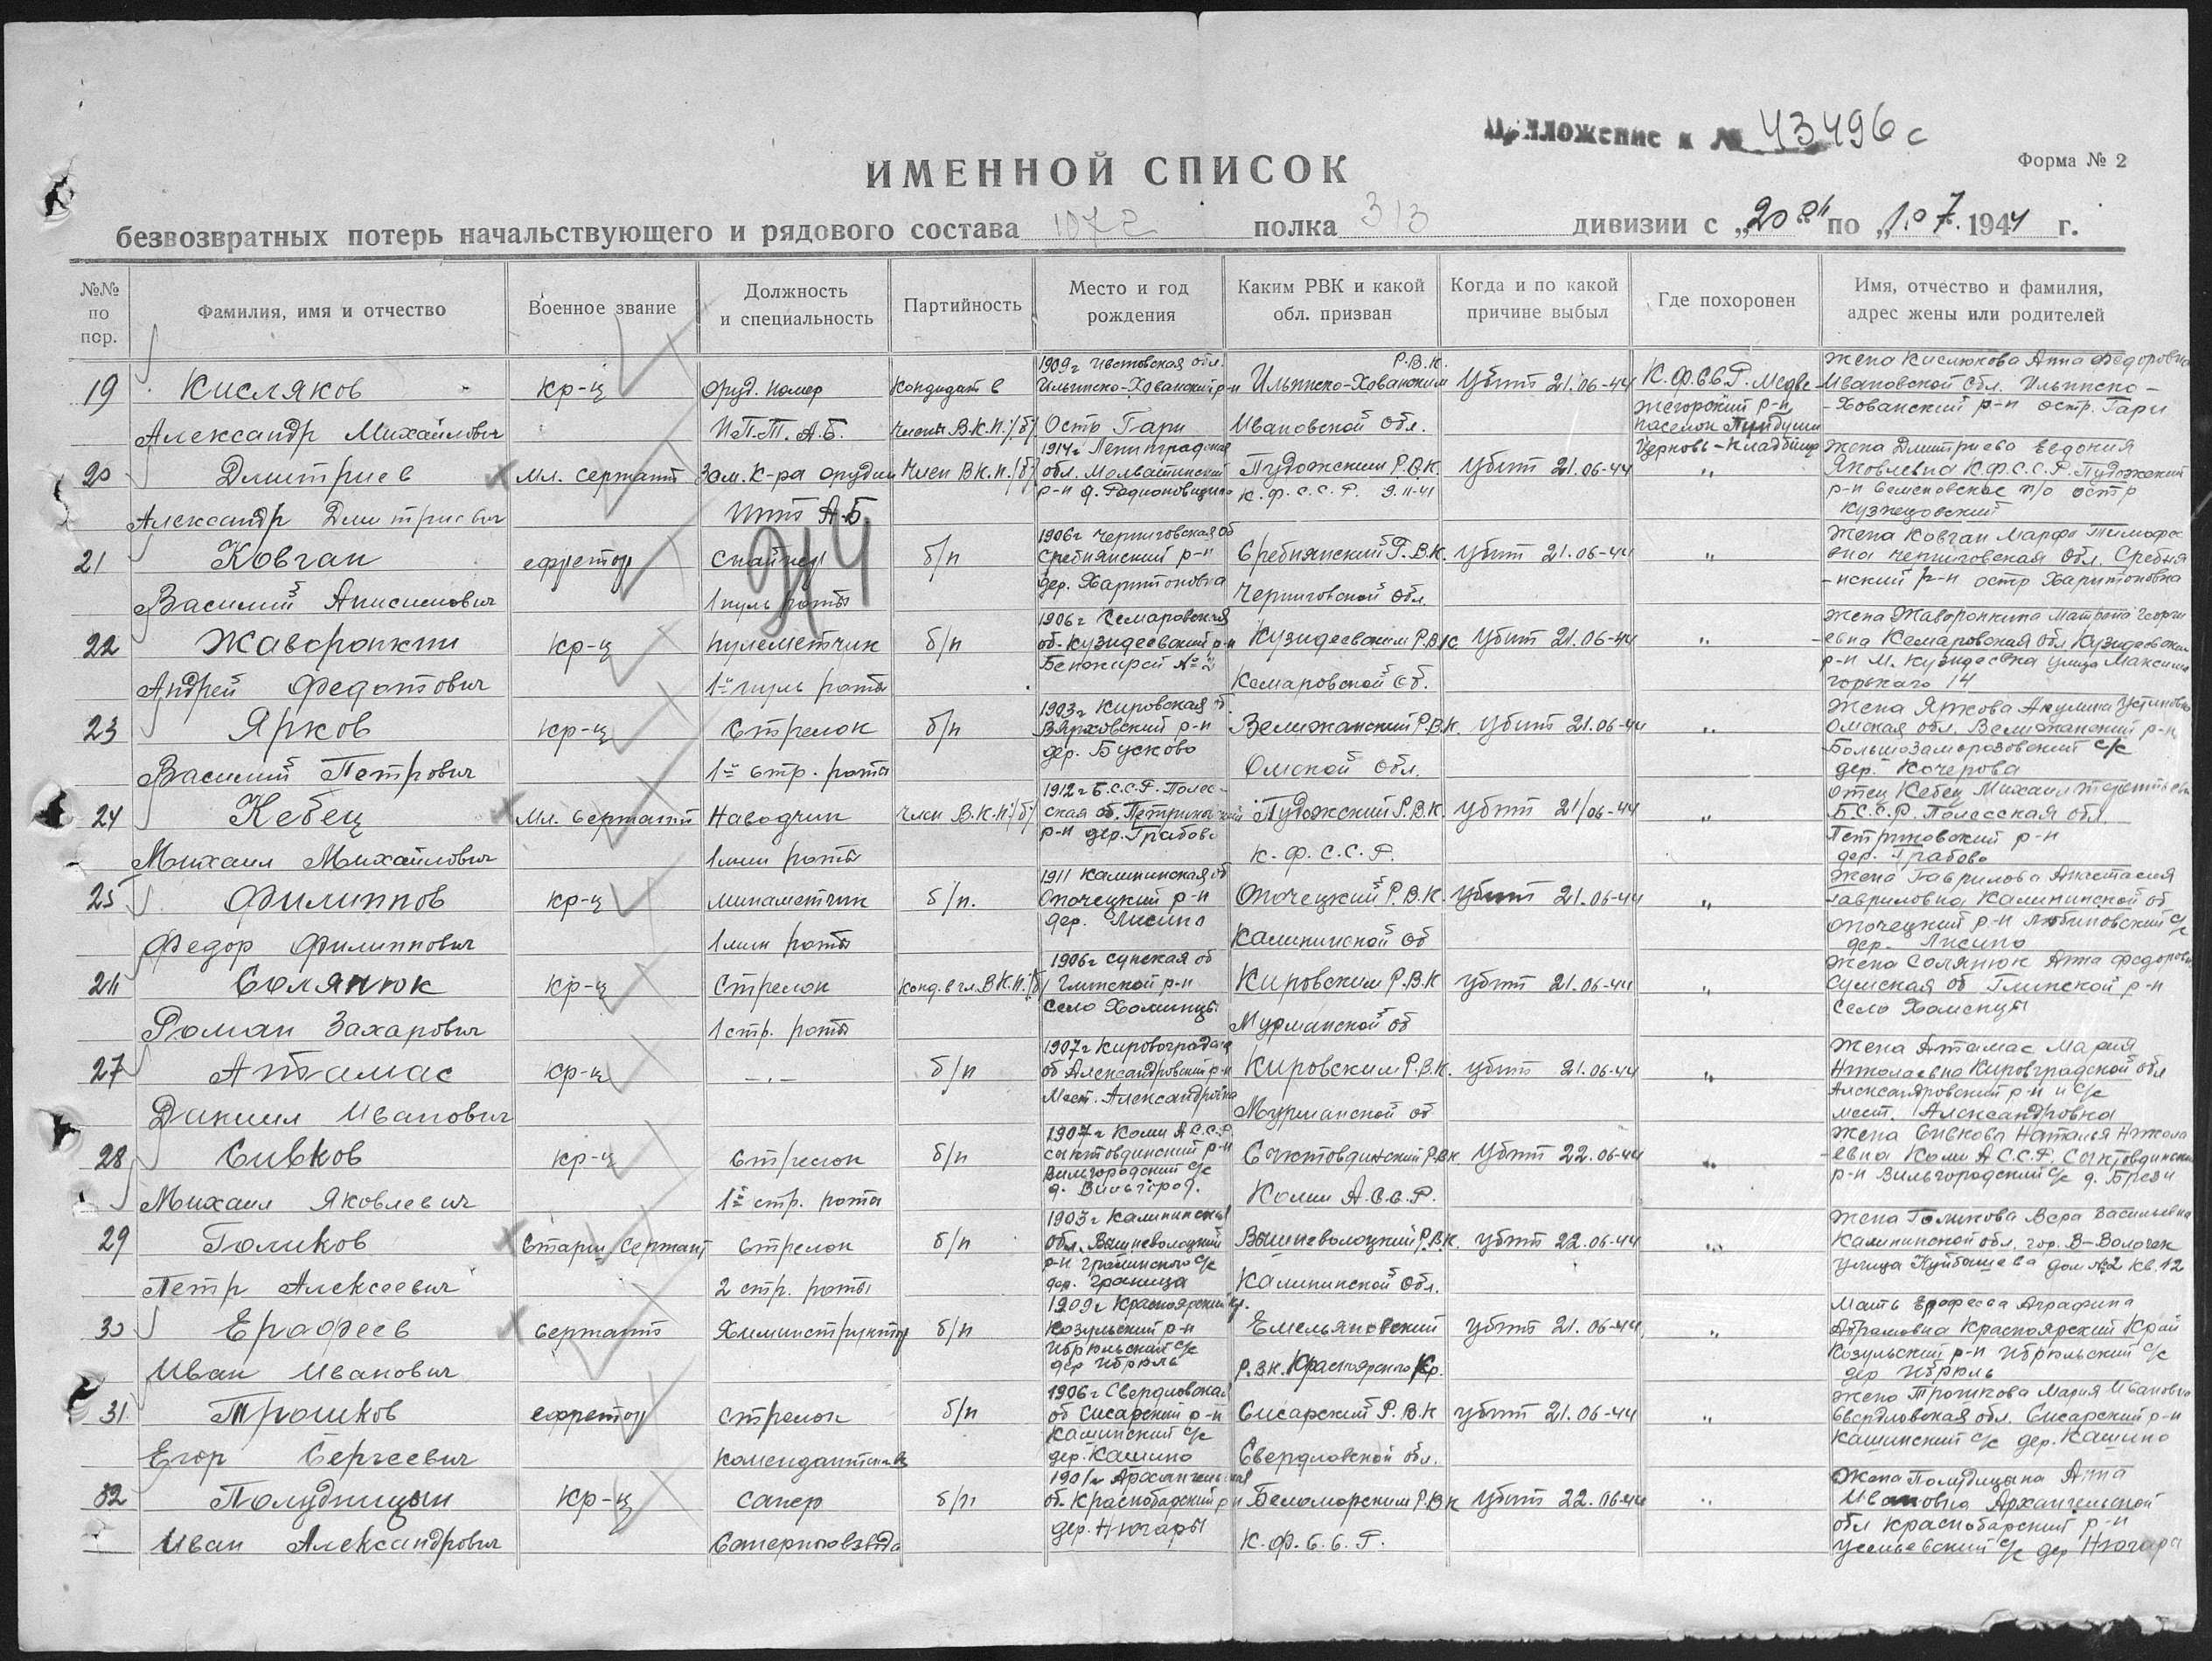 Приложение к № 43496с
ИМЕННОЙ СПИСОК
Форма № 2
безвозвратных потерь начальствующего и рядового состава 1072 полка 313 дивизии с „20 по „1.07. 1944 г.
№№ по пор. Фамилия, имя и отчество Военное звание Должность и специальность Партийность Место и год рождения Каким РВК и какой обл. призван Когда и по какой причине выбыл Где похоронен Имя, отчество и фамилия, адрес жены или родителей
914
19 Кисляков кр-ц Оруд. номер Кондидат в 1909г Ивановская обл. Ильинско-Хованский р-н Ильинско-Хованским Р.В.К. Убит 21.06-44 К.Ф.С.С.Р. Медве- Жена Кислякова Анна Федоровна
Александр Михайлович П.Т.А.Б. Члены В.К.П./б/ Остр Гари Ивановской обл. жегорский р-н поселок Пиндуши Церковь-Кладбище Ивановской обл. Ильинско-Хованский р-н остр. Гари
20 Дмитриев Мл. сержант Зам. к-ра орудия Член В.К.П./б/ 1914г Ленинградская обл. Молватинский р-н Пудожским Р.В.К. Убит 21.06-44 „ Жена Дмитриева Евдокия
Александр Дмитриевич А.Б. К.Ф.С.С.Р. 9.11-41 Яковлевна К.Ф.С.С.Р. Пудожский р-н Семеновское п/о остр Кузнецовский
21 Ковган ефрейтор Снайпер б/п 1906г Черниговская об Сребнянский р-н Сребнянский Р.В.К. Убит 21.06-44 „ Жена Ковган Марфа Тимофе-
Василий Анисимович 1 пуль роты дер. Харитоновка Черниговской обл. евна Черниговская обл. Сребня-нский р-н остр Харитоновка
22 Жаворонкин кр-ц пулеметчик б/п 1906г Кемаровская об-Кузидеевский р-н Кузидеевским Р.В.К. Убит 21.06-44 „ Жена Жаворонкина Матрена Георги-
Андрей Федотович 1й пуль роты №2 Кемаровской об. евна Кемаровская обл Кузидеевский р-н М. Кузидеевка улица Максима горького 14
23 Ярков кр-ц Стрелок б/п 1903г Кировская о. Велижанский Р.В.К. убит 21.06-44 „ Жена Яркова Акулина Устиновна
Василий Петрович 1й стр. роты дер. Бусково Омской обл. Омская обл. Велижанский р-н Большезаморозовский с/с дер. Кочерова
24 Кебец Мл. сержант Наводчик член В.К.П./б/ 1912г Б.С.С.Р. Полесская об. Петриковский Пудожский Р.В.К. убит 21/06-44 „ Отец Кебец Михаил
Михаил Михайлович 1 мин роты р-н дер. Грабово К.Ф.С.С.Р. Б.С.С.Р. Полесская обл. Петриковский р-н дер. Грабово
25 Филиппов кр-ц минаметчик б/п. 1911 Калининская об Опочецкий р-н Опочецкий Р.В.К. убит 21.06-44 „ Жена Гаврилова Анастасия
Федор Филиппович 1 мин роты дер. Лисино Калининской об Гавриловна Калининской об Опочецкий р-н с/с дер. Лисино
26 Солянюк кр-ц Стрелок Конд. в чл. В.К.П./б/ 1906г Сумская об Глинской р-н Кировским Р.В.К убит 21.06-44 „ Жена Солянюк Анна Федоровна
Роман Захарович 1 стр. роты село Хоминцы Мурманской об Сумская об Глинской р-н село Хоменцы
27 Атамас кр-ц -„- б/п 1907г Кировоградская об Александровский р-н Кировским Р.В.К. убит 21.06-44 „ Жена Атамас Мария
Даниил Иванович Мест. Александровка Мурманской об Николаевна Кировградской обл Александровский р-н и с/с мест. Александровка
28 Сивков кр-ц Стрелок б/п 1907г Коми А.С.С.Р. Сыктовдинский р-н Сыктовдинский Р.В.К. Убит 22.06-44 „ Жена Сивкова Наталья Никола-
Михаил Яковлевич 1й стр. рота Вильгородский с/с д. Вильгород. Комии А.С.С.Р. евна Коми А.С.С.Р. Сыктовдинский р-н Вильгородский с/с д.
29 Голиков Старш. Сержант Стрелок б/п 1903г Калининская обл. Вышневолоцкий Вышневолоцкий Р.В.К. убит 22.06-44 „ Жена Голикова Вера Васильевна
Петр Алексеевич 2 стр. роты дер. Граница Калининской обл. Калининской обл. гор. В-Волочек улица Куйбышева дом №2 кв. 12
30 Ерофеев сержант Химинструктор б/п 1909г Красноярский кр. Козульский р-н Емельяновский убит 21.06-44 „ Мать Ерофеева Аграфина
Иван Иванович Ибрюльский с/с дер Ибрюль Р.В.К. Красноярского Кр. Абрамовна Красноярский Край Козульский р-н Ибрюльский с/с дер Ибрюль
31 Трошков ефрейтор стрелок б/п 1906г Свердловская об Сисарский р-н Сисарский Р.В.К убит 21.06-44 „ Жена Трошкова Мария Ивановна
Егор Сергеевич Кашинский с/с дер. Кашино Свердловской обл. Свердловская обл. Сисарский р-н Кашинский с/с дер. Кашино
32 Полудницын кр-ц сапер б/п 1901г Архангельская об. Краснобарский р-н Беломорским Р.В.К убит 22.06-44 „ Жена Полудицына Анна
Иван Александрович Саперного взвода дер. Нючары К.Ф.С.С.Р. Ивановна Архангельской обл Краснобарский р-н с/с дер